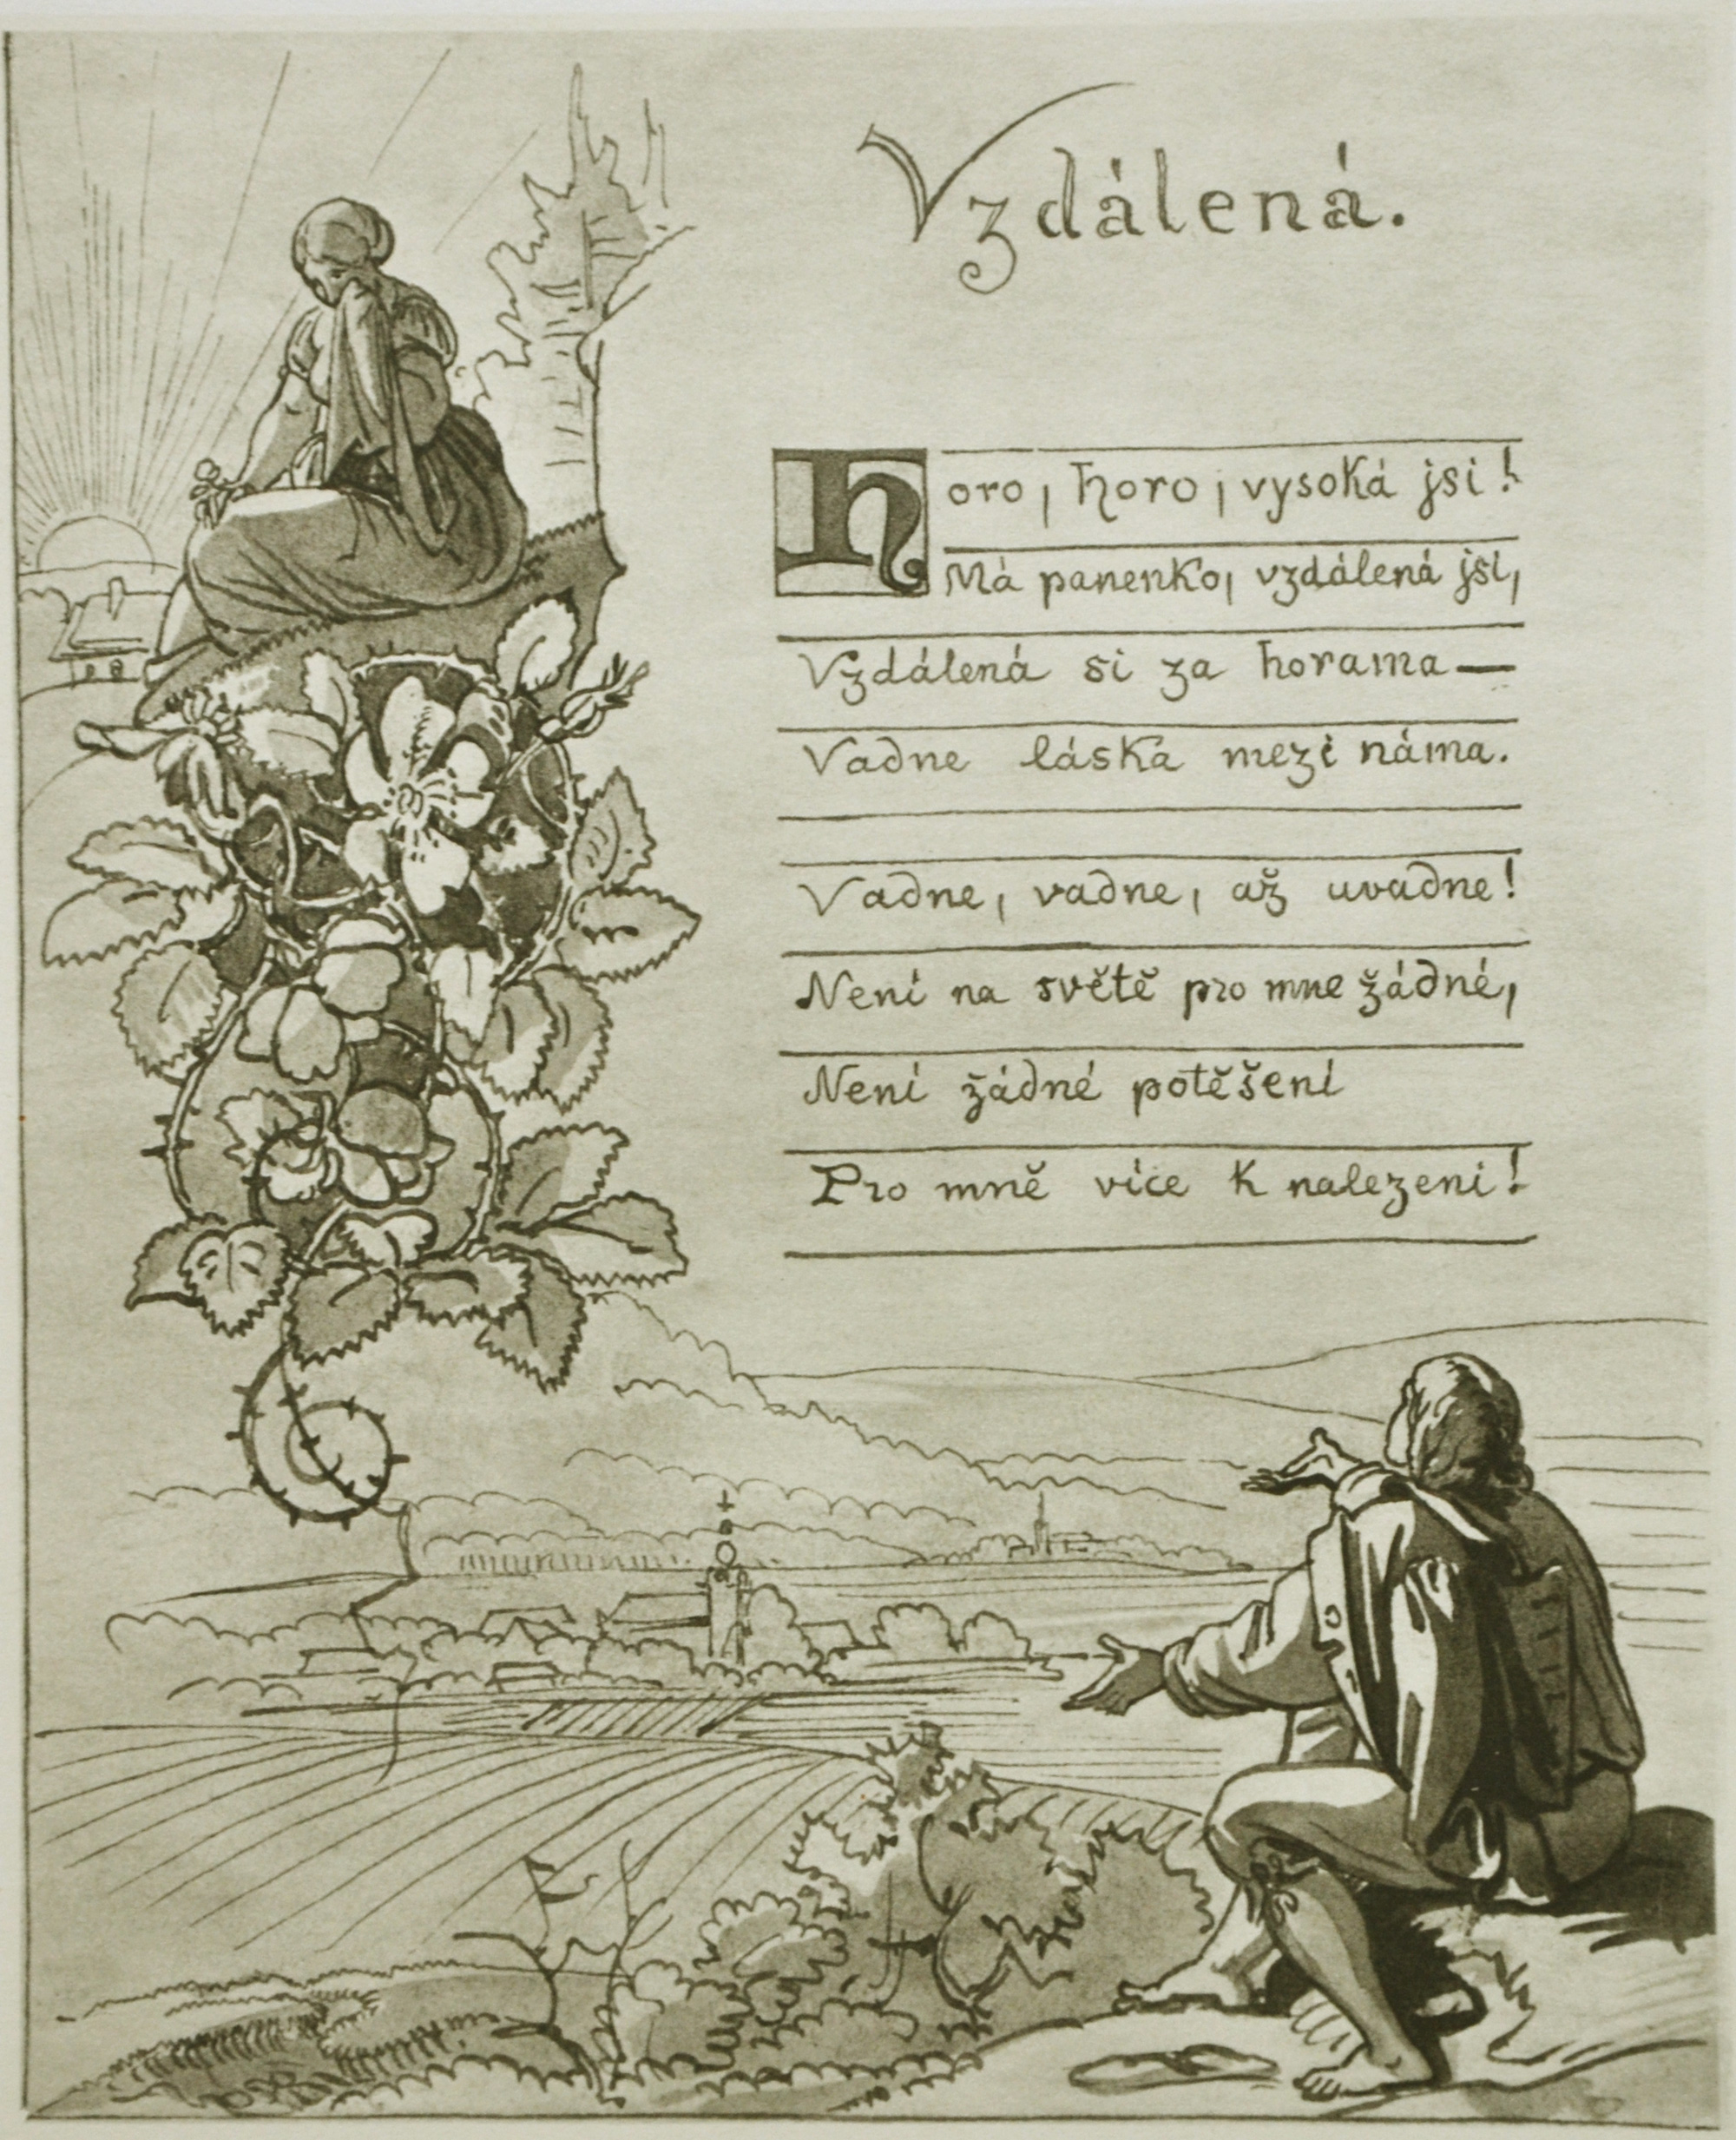 Vzdálená.
Horo, horo, vysoká jsi!
Má panenko, vzdálená jsi,
Vzdálená si za horama—
Vadne láska mezi náma.
Vadne, vadne, až uvadne!
Není na světě pro mne žádné,
Není žádné potěšení
Pro mně více k nalezení!